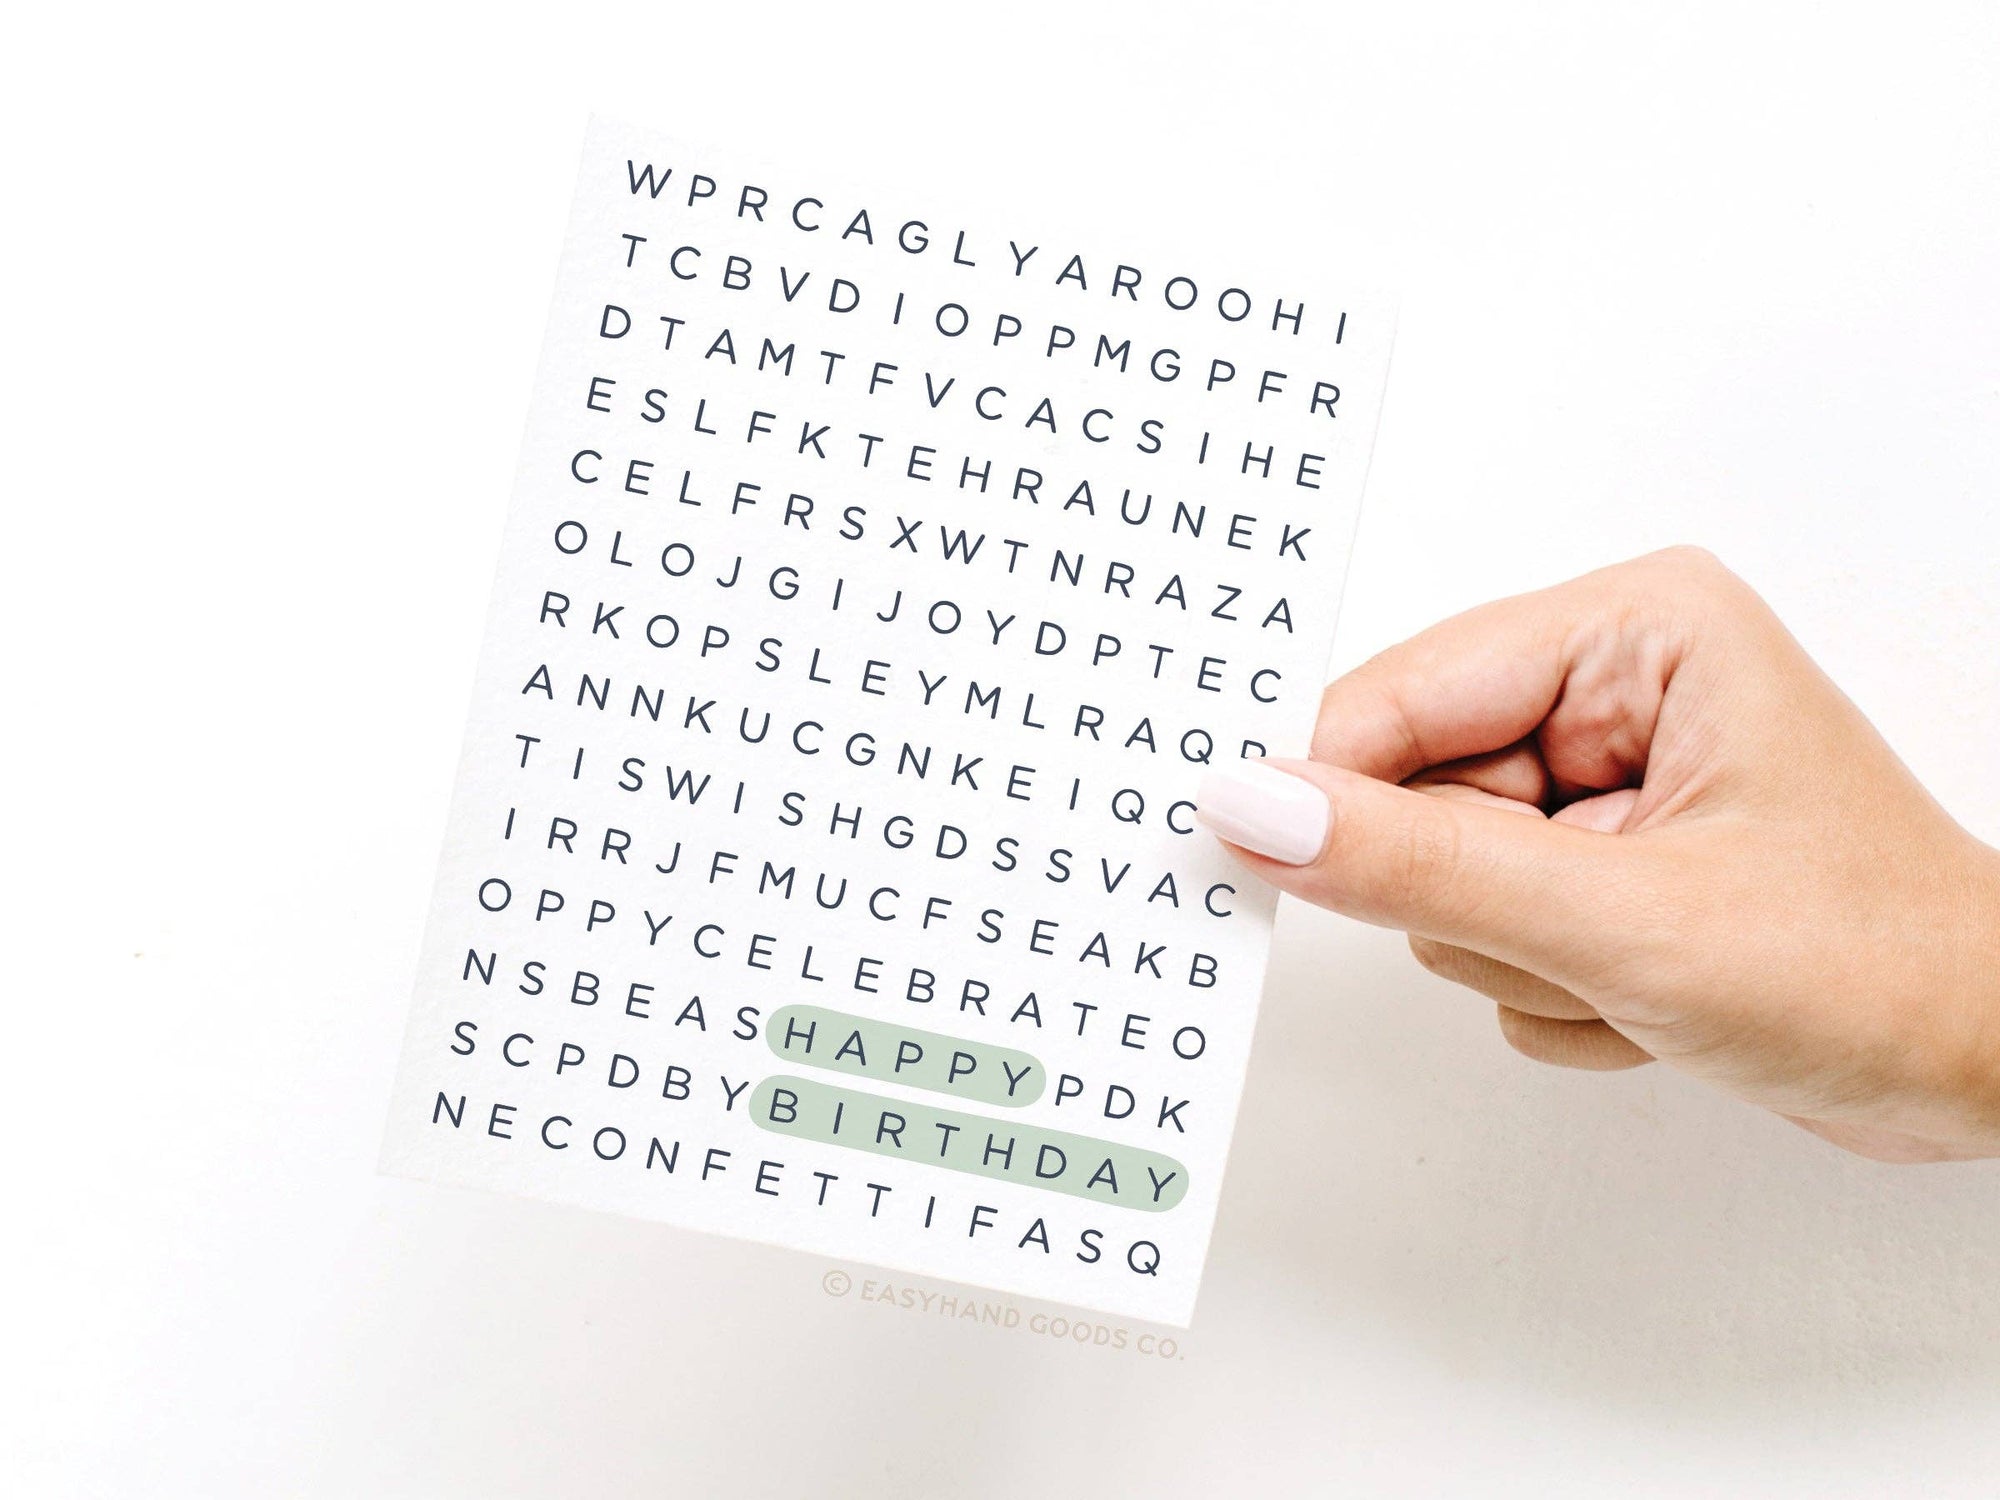 W P R C A G L Y A R O O H I
T C B V D I O P P M G P F R
D T A M T F V C A C S I H E
E S L F K T E H R A U N E K
C E L F R S X W T N R A Z A
O L O J G I J O Y D P T E C
R K O P S L E Y M L R A Q
A N N K U C G N K E I Q C
T I S W I S H G D S S V A C
I R R J F M U C F S E A K B
O P P Y C E L E B R A T E O
N S B E A S H A P P Y P D K
S C P D B Y B I R T H D A Y
N E C O N F E T T I F A S Q
© EASYHAND GOODS CO.